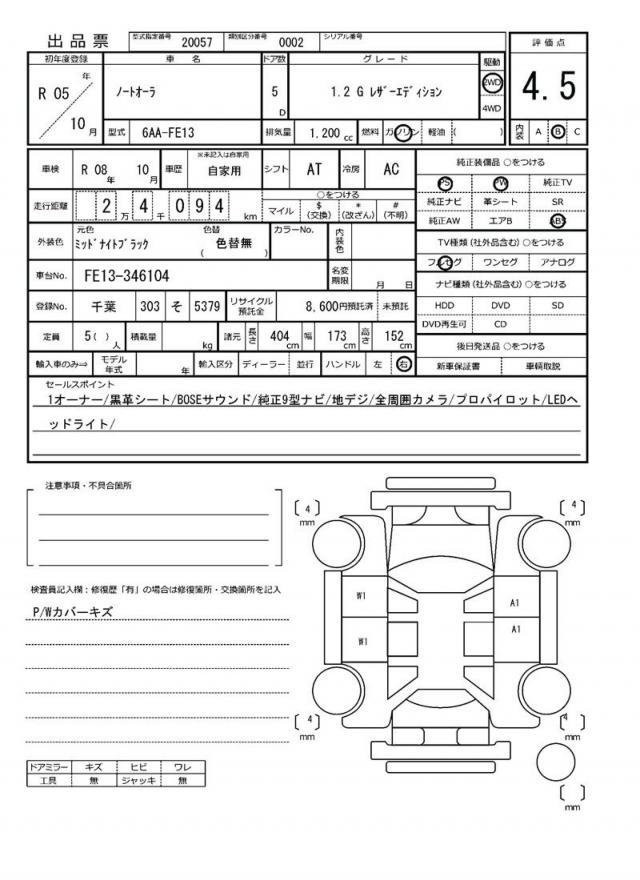 出品票 型式指定番号 20057 類別区分番号 0002 シリアル番号
評価点
初年度登録 車名 ドア数 グレード 駆動
R 05 年 ノートオーラ 5 D 1.2 G レザーエディション 2WD 4.5
4WD
10 月 型式 6AA-FE13 排気量 1,200 cc 燃料 ガソリン 軽油 ( ) 内装 A B C
車検 R 08 年 10 月 車歴 ※未記入は自家用 自家用 シフト AT 冷房 AC 純正装備品 ○をつける
PS PW 純正TV
走行距離 2 万 4 千 0 9 4 km ○をつける
マイル $ (交換) * (改ざん) # (不明)
純正ナビ 革シート SR
純正AW エアB ABS
外装色 元色 ミッドナイトブラック 色替 ( 色替無 ) カラーNo. 内装色
TV種類 (社外品含む) ○をつける
フルセグ ワンセグ アナログ
車台No. FE13-346104 名変期限 月 日
ナビ種類 (社外品含む) ○をつける
登録No. 千葉 303 そ 5379 リサイクル預託金 8,600円預託済 未預託
HDD DVD SD
DVD再生可 CD
定員 5 ( ) 人 積載量 kg 諸元 長さ 404 cm 幅 173 cm 高さ 152 cm
後日発送品 ○をつける
輸入車のみ⇒ モデル年式 年 輸入区分 ディーラー 並行 ハンドル 左 右 新車保証書 車輌取説
セールスポイント
1オーナー/黒革シート/BOSEサウンド/純正9型ナビ/地デジ/全周囲カメラ/プロパイロット/LEDヘ
ッドライト/
注意事項・不具合箇所
[ 4 ] mm
[ 4 ] mm
検査員記入欄：修復歴「有」の場合は修復箇所・交換箇所を記入
P/Wカバーキズ
W1
A1
W1
A1
[ 4 ] mm
[ 4 ] mm
ドアミラー キズ ヒビ ワレ
工具 無 ジャッキ 無
[ ] mm